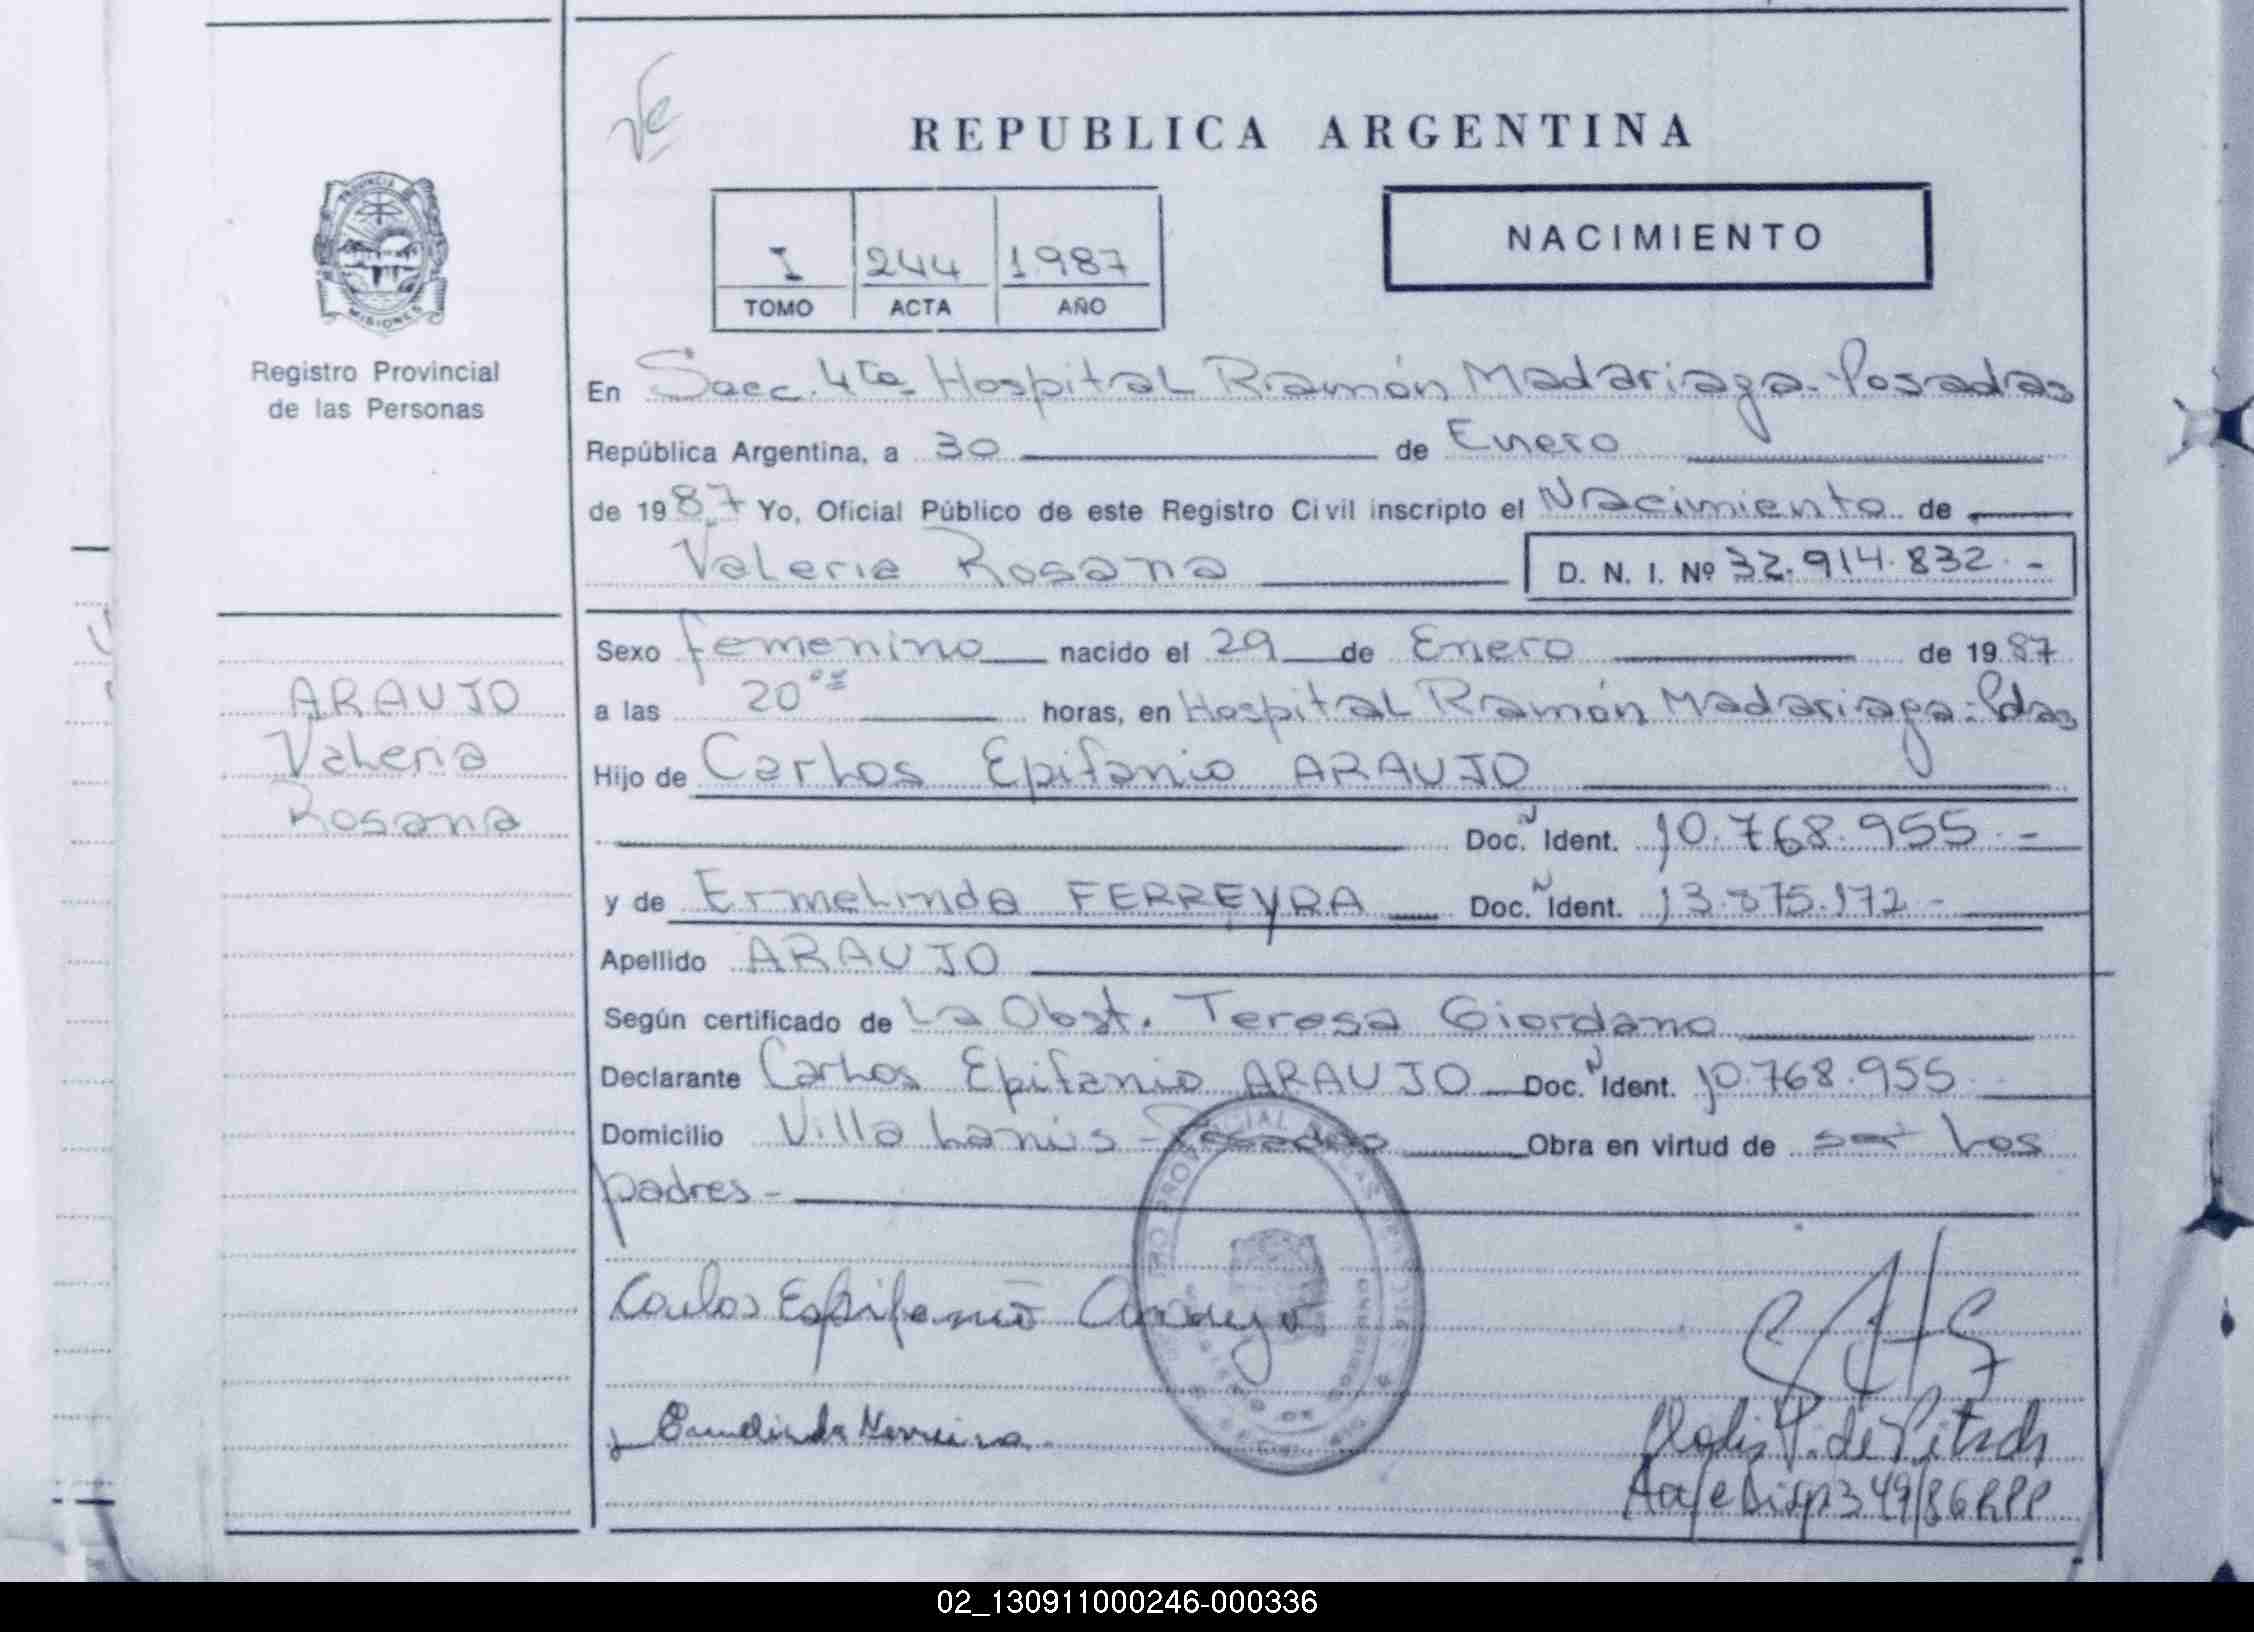 REPUBLICA ARGENTINA
PROVINCIA
MISIONES
Registro Provincial
de las Personas
I 244 1987
TOMO ACTA AÑO
NACIMIENTO
En Secc. 4ta. Hospital Ramón Madariaga - Posadas
República Argentina, a 30 de Enero
de 1987 Yo, Oficial Público de este Registro Civil inscripto el Nacimiento de
Valeria Rosana D. N. I. Nº 32.914.832.-
Sexo femenino nacido el 29 de Enero de 1987
a las 20 horas, en Hospital Ramón Madariaga - Pdas
Hijo de Carlos Epifanio ARAUJO
Doc. N Ident. 10.768.955.-
y de Ermelinda FERREYRA Doc. N Ident. 13.875.172-
Apellido ARAUJO
Según certificado de La Obst. Teresa Giordano
Declarante Carlos Epifanio ARAUJO Doc. N Ident. 10.768.955
Domicilio Villa Lanús - Posadas Obra en virtud de ser los
padres -
Carlos Epifanio Araujo
Ermelinda Ferreira
349/86 RPP
ARAUJO
Valeria
Rosana
02_130911000246-000336